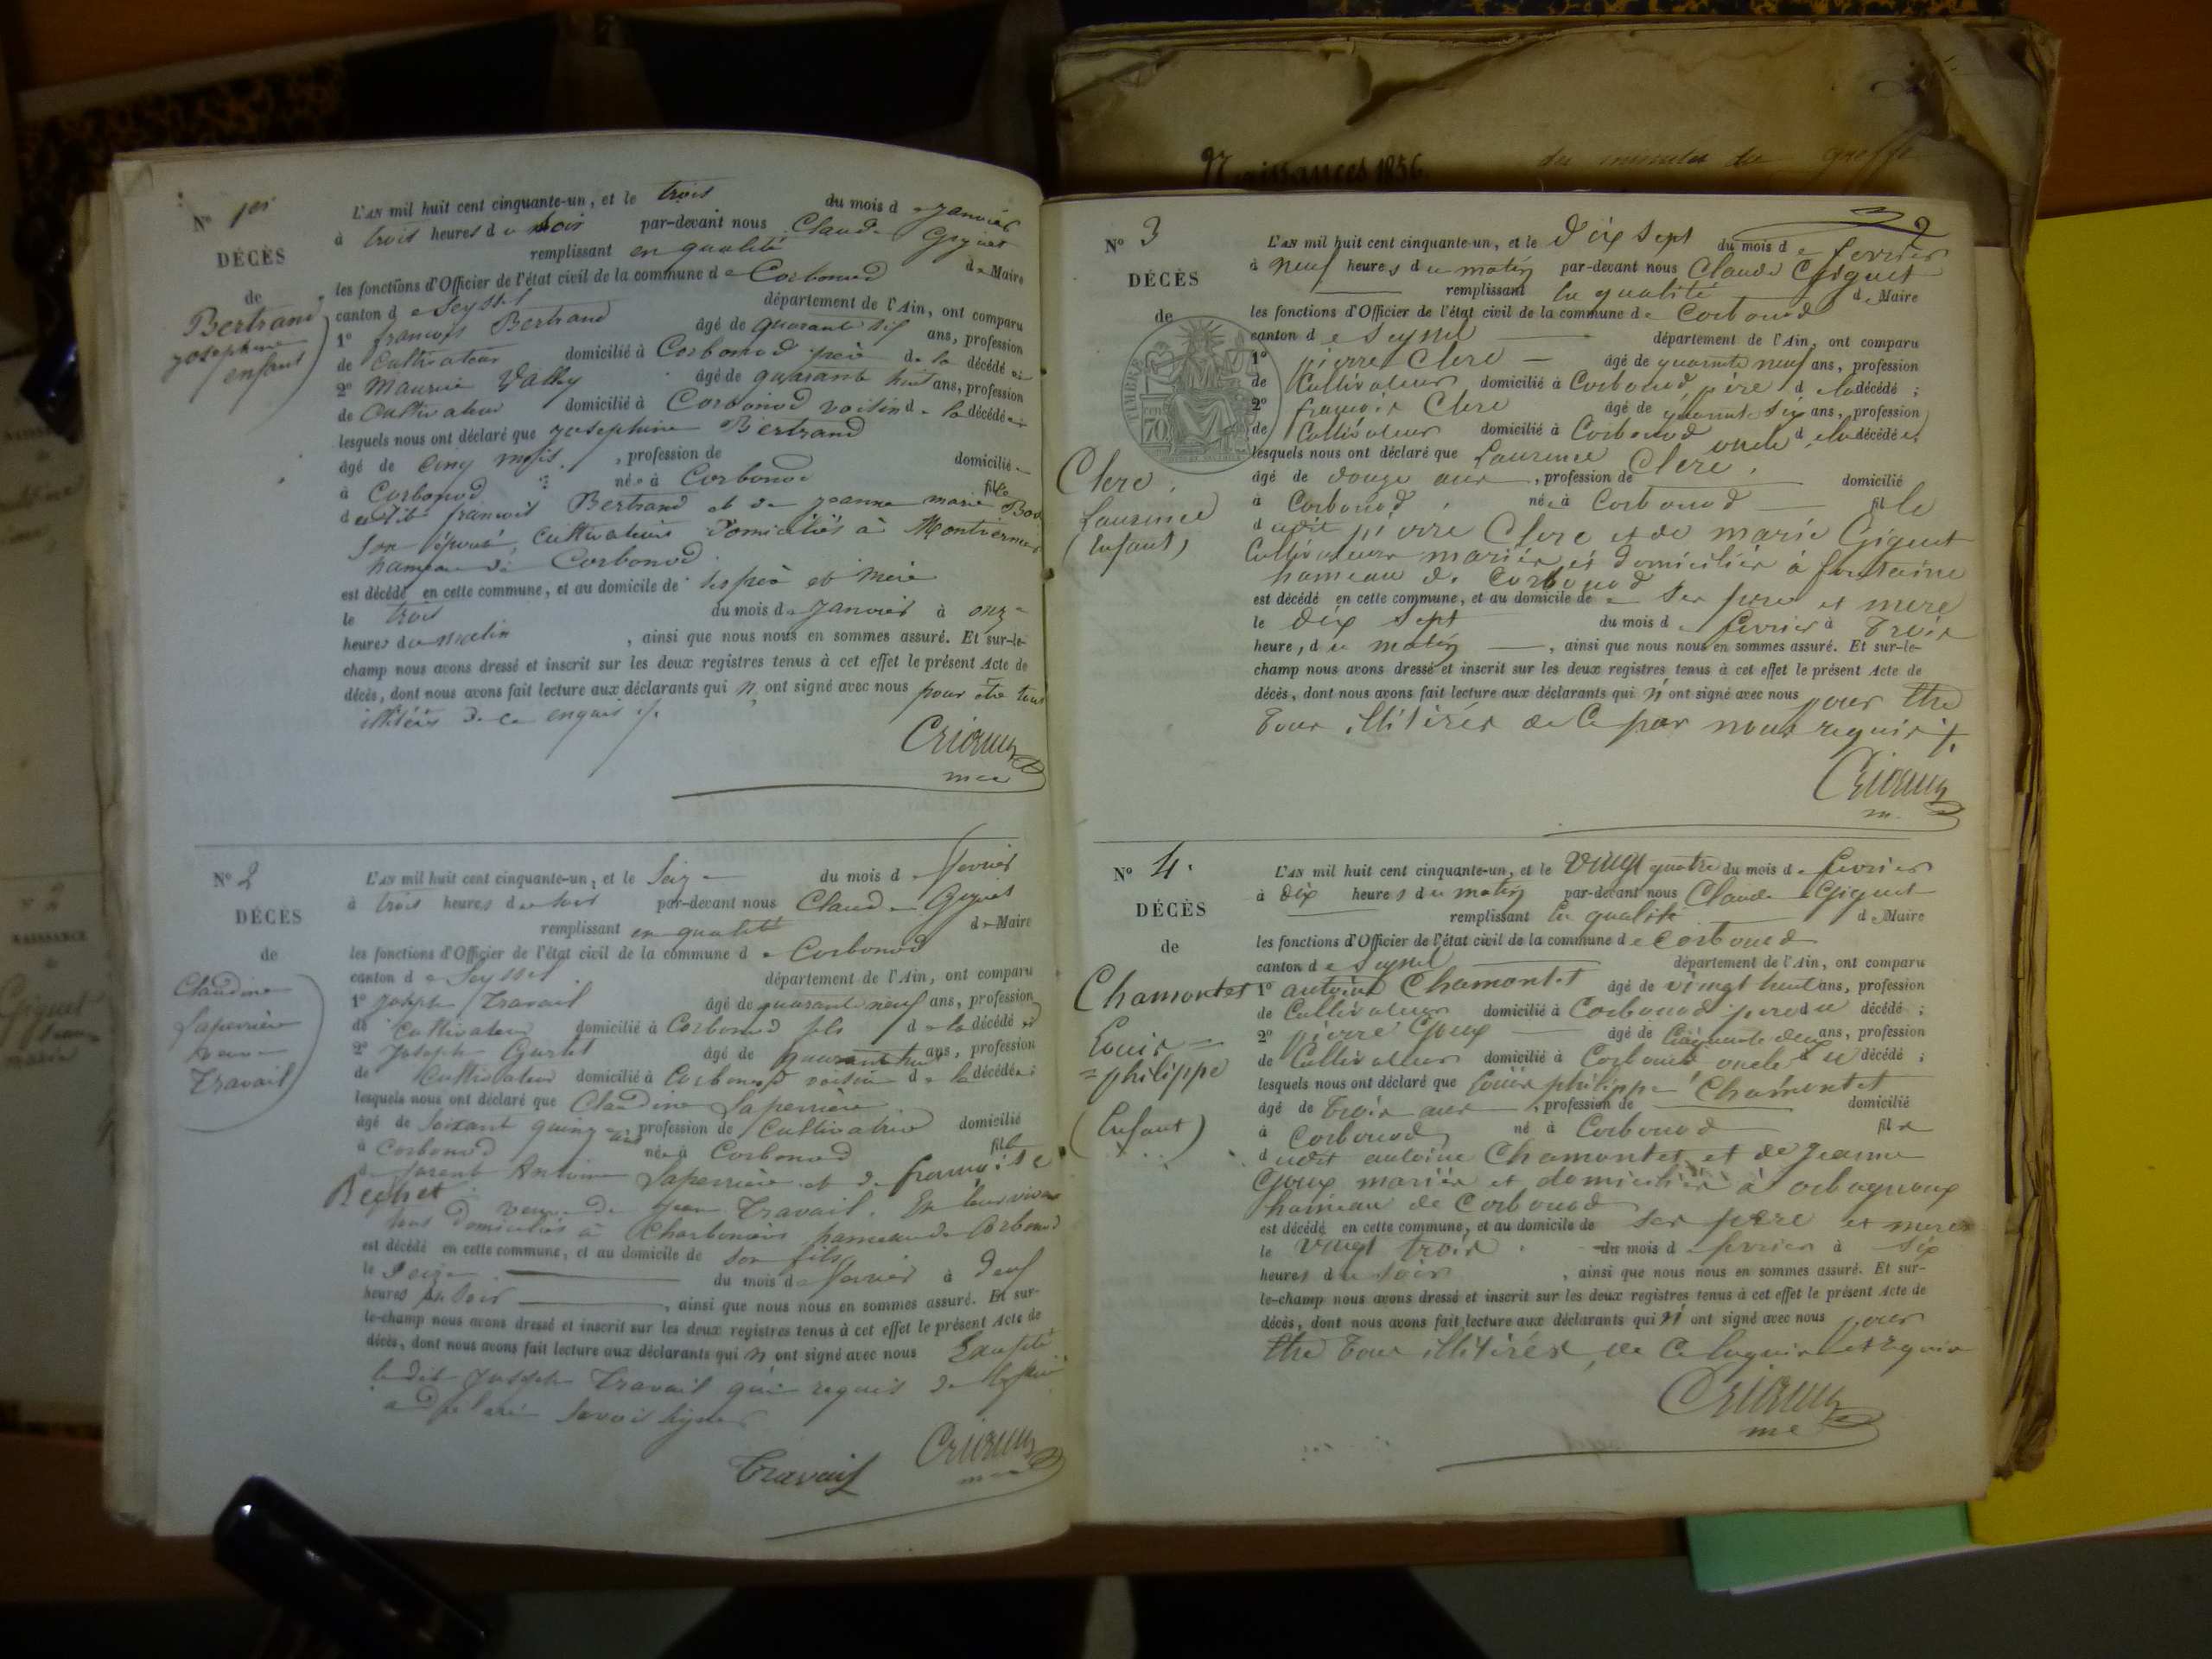 Naissances 1856
N° 1er
DÉCÈS
de
Bertrand
josephine
enfant
L'AN mil huit cent cinquante-un, et le trois du mois de janvier
à trois heures du soir par-devant nous Claude Giguet
remplissant en qualité de Maire
les fonctions d'Officier de l'état civil de la commune de Corbonod
canton de Seyssel département de l'Ain, ont comparu
1° françois Bertrand âgé de quarante six ans, profession
de Cultivateur domicilié à Corbonod père de la décédée
2° Maurice Vally âgé de quarante huit ans, profession
de Cultivateur domicilié à Corbonod voisin de la décédée
lesquels nous ont déclaré que josephine Bertrand
âgé de cinq mois, profession de domicilié
à Corbonod née à Corbonod fille
dudit françois Bertrand et de jeanne marie
Son épouse, cultivateurs Domiciliés à
hameau de Corbonod
est décédé en cette commune, et au domicile de ses père et mère
le trois du mois de janvier à onze
heures du matin, ainsi que nous nous en sommes assuré. Et sur-le-
champ nous avons dressé et inscrit sur les deux registres tenus à cet effet le présent Acte de
décès, dont nous avons fait lecture aux déclarants qui n'ont signé avec nous pour être tous
illitérés de ce enquis
N° 2
DÉCÈS
de
Claudine
Laperrière
veuve
Travail
L'AN mil huit cent cinquante-un, et le Seize du mois de fevrier
à trois heures du soir par-devant nous Claude Giguet
remplissant en qualité de Maire
les fonctions d'Officier de l'état civil de la commune de Corbonod
canton de Seyssel département de l'Ain, ont comparu
1° joseph Travail âgé de quarante neuf ans, profession
de Cultivateur domicilié à Corbonod fils de la décédée
2° Joseph âgé de ans, profession
de Cultivateur domicilié à Corbonod voisin de la décédée;
lesquels nous ont déclaré que Claudine Laperrière
âgé de Soixant quinze ans, profession de Cultivatrice domicilié
à Corbonod née à Corbonod fille
Antoine Laperrière et de françoise
veuve de jean Travail. En leur vivant
tous domiciliés à hameau de Corbonod
est décédé en cette commune, et au domicile de son fils
le Seize du mois de fevrier à
heures du soir, ainsi que nous nous en sommes assuré. Et sur-
le-champ nous avons dressé et inscrit sur les deux registres tenus à cet effet le présent Acte de
décès, dont nous avons fait lecture aux déclarants qui n'ont signé avec nous
ledit Joseph Travail qui requis de
a déclaré savoir signer
Travail
N° 3
2
DÉCÈS
de
TIMBRE
70
Clerc
Laurence
(Enfant)
L'AN mil huit cent cinquante-un, et le dix sept du mois de fevrier
à neuf heures du matin par-devant nous Claude Giguet
remplissant en qualité de Maire
les fonctions d'Officier de l'état civil de la commune de Corbonod
canton de Seyssel département de l'Ain, ont comparu
1° pierre Clerc âgé de quarante neuf ans, profession
de Cultivateur domicilié à Corbonod père de la décédé;
2° françois Clerc âgé de quarante six ans, profession
de Cultivateur domicilié à Corbonod oncle de la décédée,
lesquels nous ont déclaré que Laurence Clerc,
âgé de douze ans, profession de domicilié
à Corbonod, née à Corbonod fille
dudit pierre Clerc et de marie Giguet
Cultivateurs mariés et domiciliés à fontaine
hameau de Corbonod
est décédé en cette commune, et au domicile de ses père et mere
le dix sept du mois de fevrier à trois
heure, du matin, ainsi que nous nous en sommes assuré. Et sur-le-
champ nous avons dressé et inscrit sur les deux registres tenus à cet effet le présent Acte de
décès, dont nous avons fait lecture aux déclarants qui n'ont signé avec nous pour
tous illitérés de ce par nous requis
N° 4.
DÉCÈS
de
Chamontet
Louis =
= philippe
(Enfant)
L'AN mil huit cent cinquante-un, et le vingt quatre du mois de fevrier
à dix heures du matin par-devant nous Claude Giguet
remplissant en qualité de Maire
les fonctions d'Officier de l'état civil de la commune de Corbonod
canton de Seyssel département de l'Ain, ont comparu
1° antoine Chamontet âgé de vingt huit ans, profession
de Cultivateur domicilié à Corbonod pere du décédé;
2° pierre Goux âgé de Cinquante deux ans, profession
de Cultivateur domicilié à Corbonod oncle du décédé;
lesquels nous ont déclaré que Louis philippe Chamontet
âgé de trois ans, profession de domicilié
à Corbonod né à Corbonod fils
dudit antoine Chamontet et de Jeanne
Goux mariés et domiciliés à orbagnoux
hameau de Corbonod
est décédé en cette commune, et au domicile de ses père et mere
le vingt trois du mois de fevrier à six
heures du soir, ainsi que nous nous en sommes assuré. Et sur-
le-champ nous avons dressé et inscrit sur les deux registres tenus à cet effet le présent Acte de
décès, dont nous avons fait lecture aux déclarants qui n'ont signé avec nous pour
tous illitérés, de ce enquis et requis